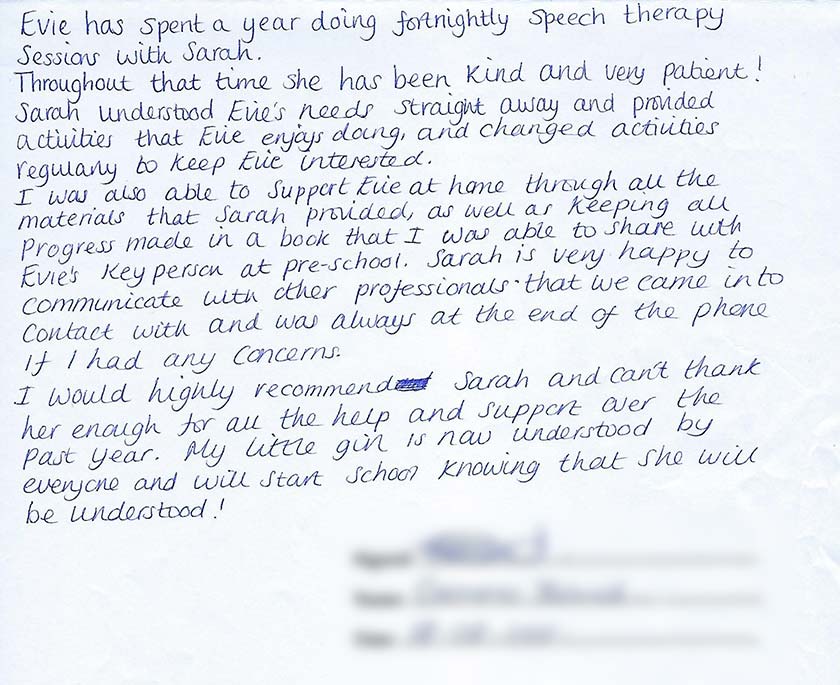 Evie has spent a year doing fortnightly speech therapy
Sessions with Sarah.
Throughout that time she has been kind and very patient!
Sarah understood Evie's needs straight away and provided
activities that Evie enjoys doing, and changed activities
regulary to keep Evie interested.
I was also able to support Evie at home through all the
materials that Sarah provided, as well as keeping all
Progress made in a book that I was able to share with
Evie's Key person at pre-school. Sarah is very happy to
Communicate with other professionals that we came into
Contact with and was always at the end of the phone
If I had any Concerns.
I would highly recommend Sarah and can't thank
her enough for all the help and support over the
Past year. My little girl is now understood by
everyone and will start school knowing that she will
be understood!